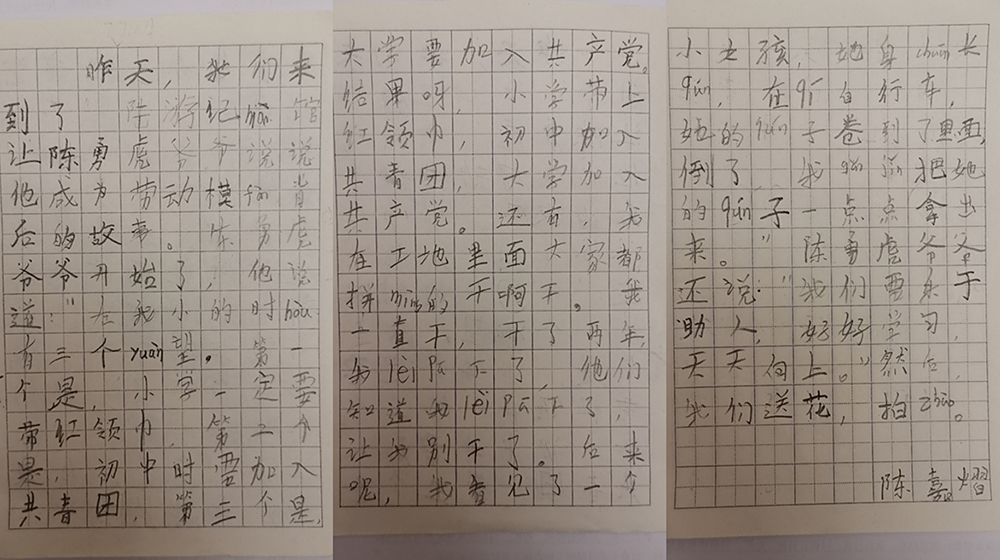 昨天，我们来
到了 游纪 馆
让陈勇虎爷爷说说
他成为劳动模fàn背
后的故事。陈勇虎
爷爷开始了，他说
道：“在我小的时hòu
有三个yuàn望。第一
个是，小学一定要
带红领巾，第二个
是，初中时需加入
共青团，第三个是，
大学要加入共产党。
结果呀，小学带上
红领巾，初中加入
共青团，大学加入
共产党。还有，我
在工地里面大家都
拼mìng的干啊干。我
一直干，干了两年，
我lèi pā下了，他们
知道我lèi pā下了，
让我别干了。后来
呢，我看见了一个
小女孩，她身chuān长
qún，在qí自行车，
她的qún子卷到了里面，
倒了，我 把她
的qún子一点点拿出
来。”陈勇虎爷爷
还说：“我们要乐于
助人，好好学习，
天天向上。”然后，
我们送花，拍zhào。
陈嘉熠